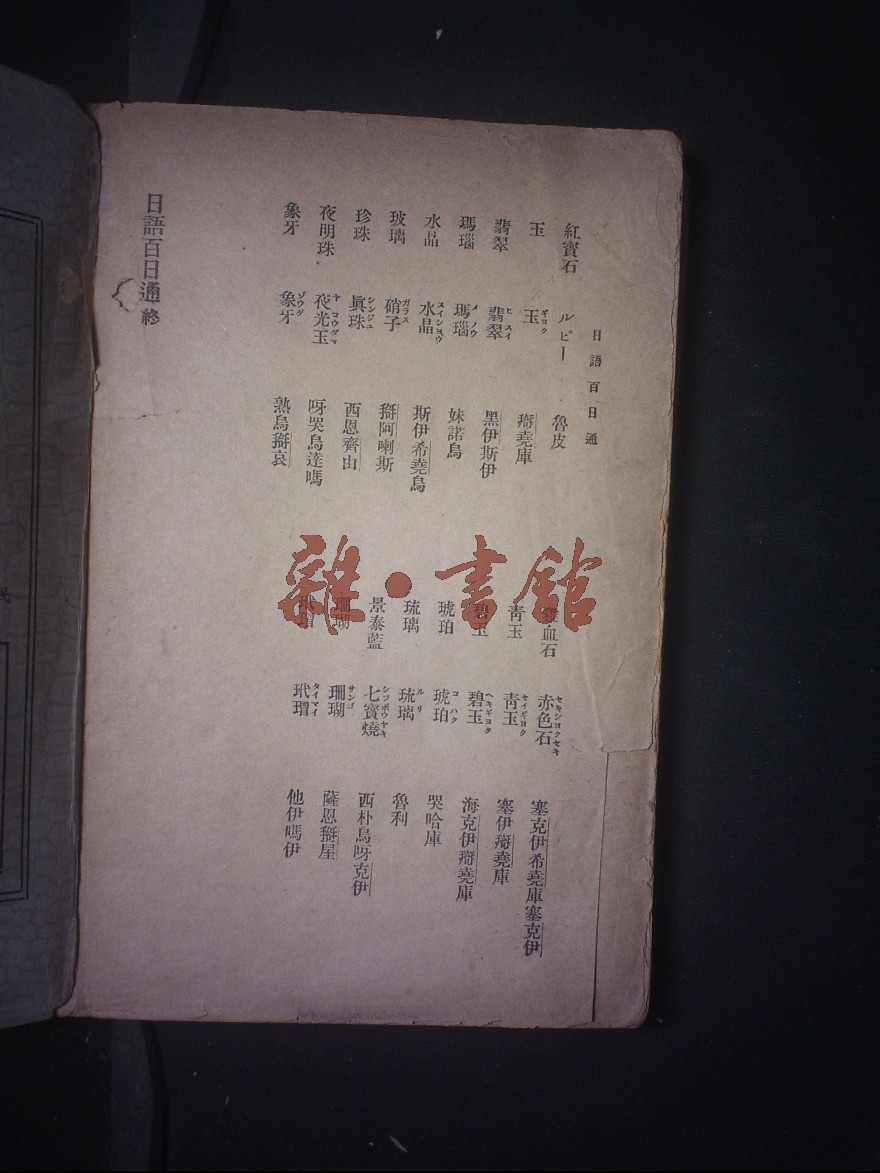 日語百日通
紅寶石 ルビー 魯皮
玉 玉 ギヨク 掰堯庫
翡翠 翡翠 ヒスイ 黑伊斯伊
瑪瑙 瑪瑙 メノウ 妹諾烏
水晶 水晶 スイシヨウ 斯伊希堯烏
玻璃 硝子 ガラス 掰阿喇斯
珍珠 眞珠 シンジユ 西恩齊由
夜明珠 夜光玉 ヤコウダマ 呀哭烏達嗎
象牙 象牙 ゾウゲ 熟烏掰哀
雞血石 赤色石 セキシヨクセキ 塞克伊希堯庫塞克伊
靑玉 靑玉 セイギヨク 塞伊掰堯庫
碧玉 碧玉 ヘキギヨク 海克伊掰堯庫
琥珀 琥珀 コハク 哭哈庫
琉璃 琉璃 ルリ 魯利
景泰藍 七寶燒 シツポウヤキ 西朴烏呀克伊
珊瑚 珊瑚 サンゴ 薩恩掰屋
玳瑁 玳瑁 タイマイ 他伊嗎伊
日語百日通終
雜·書館